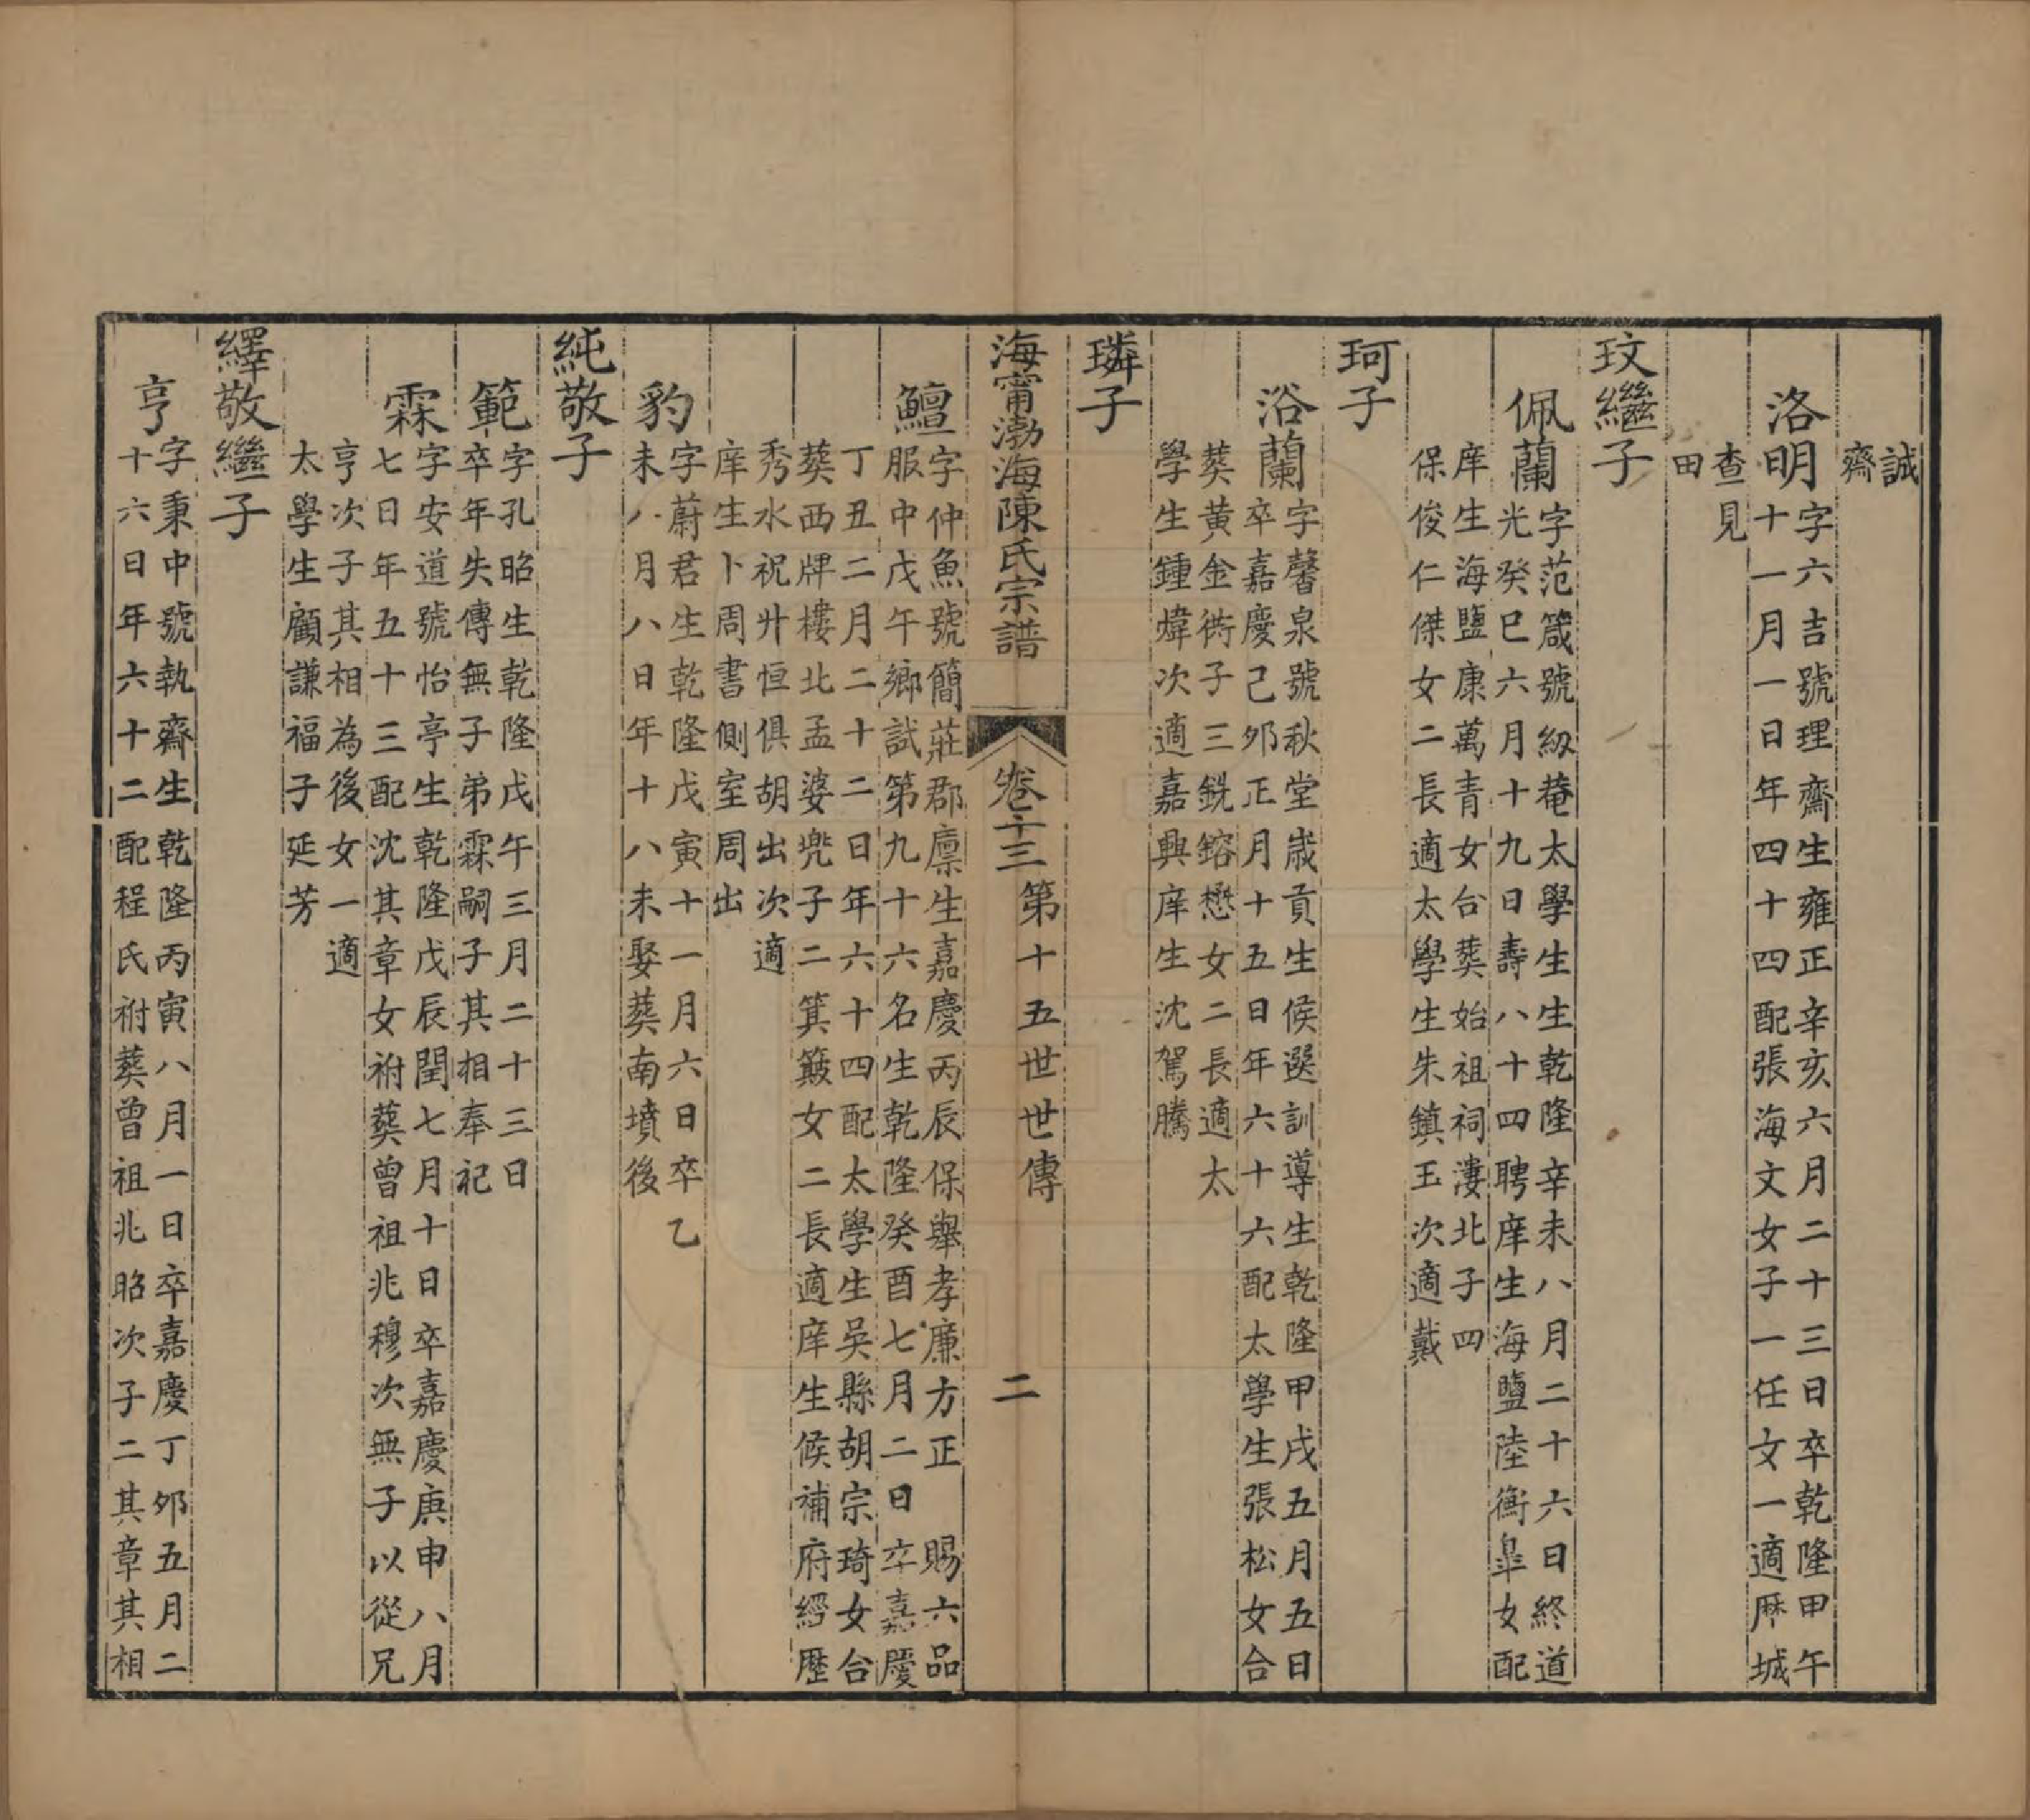 誠
齋
洛明
字六吉號理齋生雍正辛亥六月二十三日卒乾隆甲午
十一月一日年四十四配張海文女子一任女一適厤城
查見
田
玟繼子
佩蘭
字范箴號紉菴太學生生乾隆辛未八月二十六日終道
光癸巳六月十九日壽八十四聘庠生海鹽陸衡臯女配
庠生海鹽康萬青女台葬始祖祠淒北子四
保俊仁傑女二長適太學生朱鎮玉次適戴
珂子
浴蘭
字馨泉號秋堂歲貢生候選訓導生乾隆甲戌五月五日
卒嘉慶己夘正月十五日年六十六配太學生張松女合
葬黄金衖子三銑鎔懋女二長適太
學生鍾煒次適嘉興庠生沈駕騰
璘子
海甯渤海陳氏宗譜
卷十三
第十五世世傳
二
鱣
字仲魚號簡莊郡廪生嘉慶丙辰保舉孝廉方正 賜六品
服中戊午鄉試第九十六名生乾隆癸酉七月二日卒嘉慶
丁丑二月二十二日年六十四配太學生吳縣胡宗琦女台
葬西牌樓北孟婆兠子二箕簸女二長適庠生候補府經歷
秀水祝廾恒俱胡出次適
庠生卜周書側室周出
豹
字蔚君生乾隆戊寅十一月六日卒乙
未八月八日年十八未娶葬南墳後
純敬子
範
字孔昭生乾隆戊午三月二十三日
卒年失傳無子弟霖嗣子其相奉祀
霖
字安道號怡亭生乾隆戊辰閏七月十日卒嘉慶庚申八月
七日年五十三配沈其章女祔葬曾祖兆穆次無子以從兄
亨次子其相為後女一適
太學生顧謙福子延芳
繹敬繼子
亨
字秉中號執齋生乾隆丙寅八月一日卒嘉慶丁夘五月二
十六日年六十二配程氏祔葬曾祖兆昭次子二其章其相